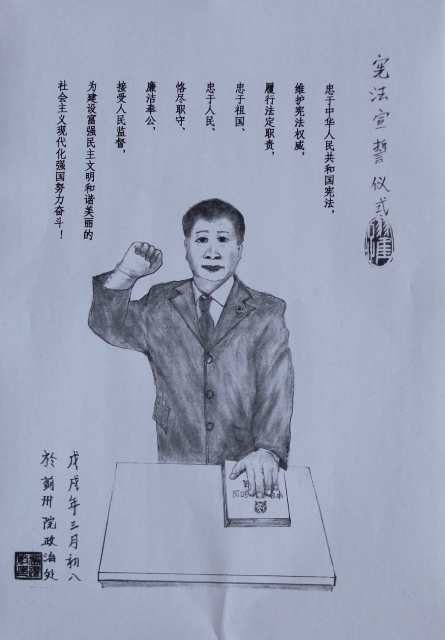 宪法宣誓仪式
忠于中华人民共和国宪法，
维护宪法权威，
履行法定职责，
忠于祖国、
忠于人民、
恪尽职守、
廉洁奉公，
接受人民监督，
为建设富强民主文明和谐美丽的
社会主义现代化强国努力奋斗！
戊戌年三月初八
於蓟州院政治处